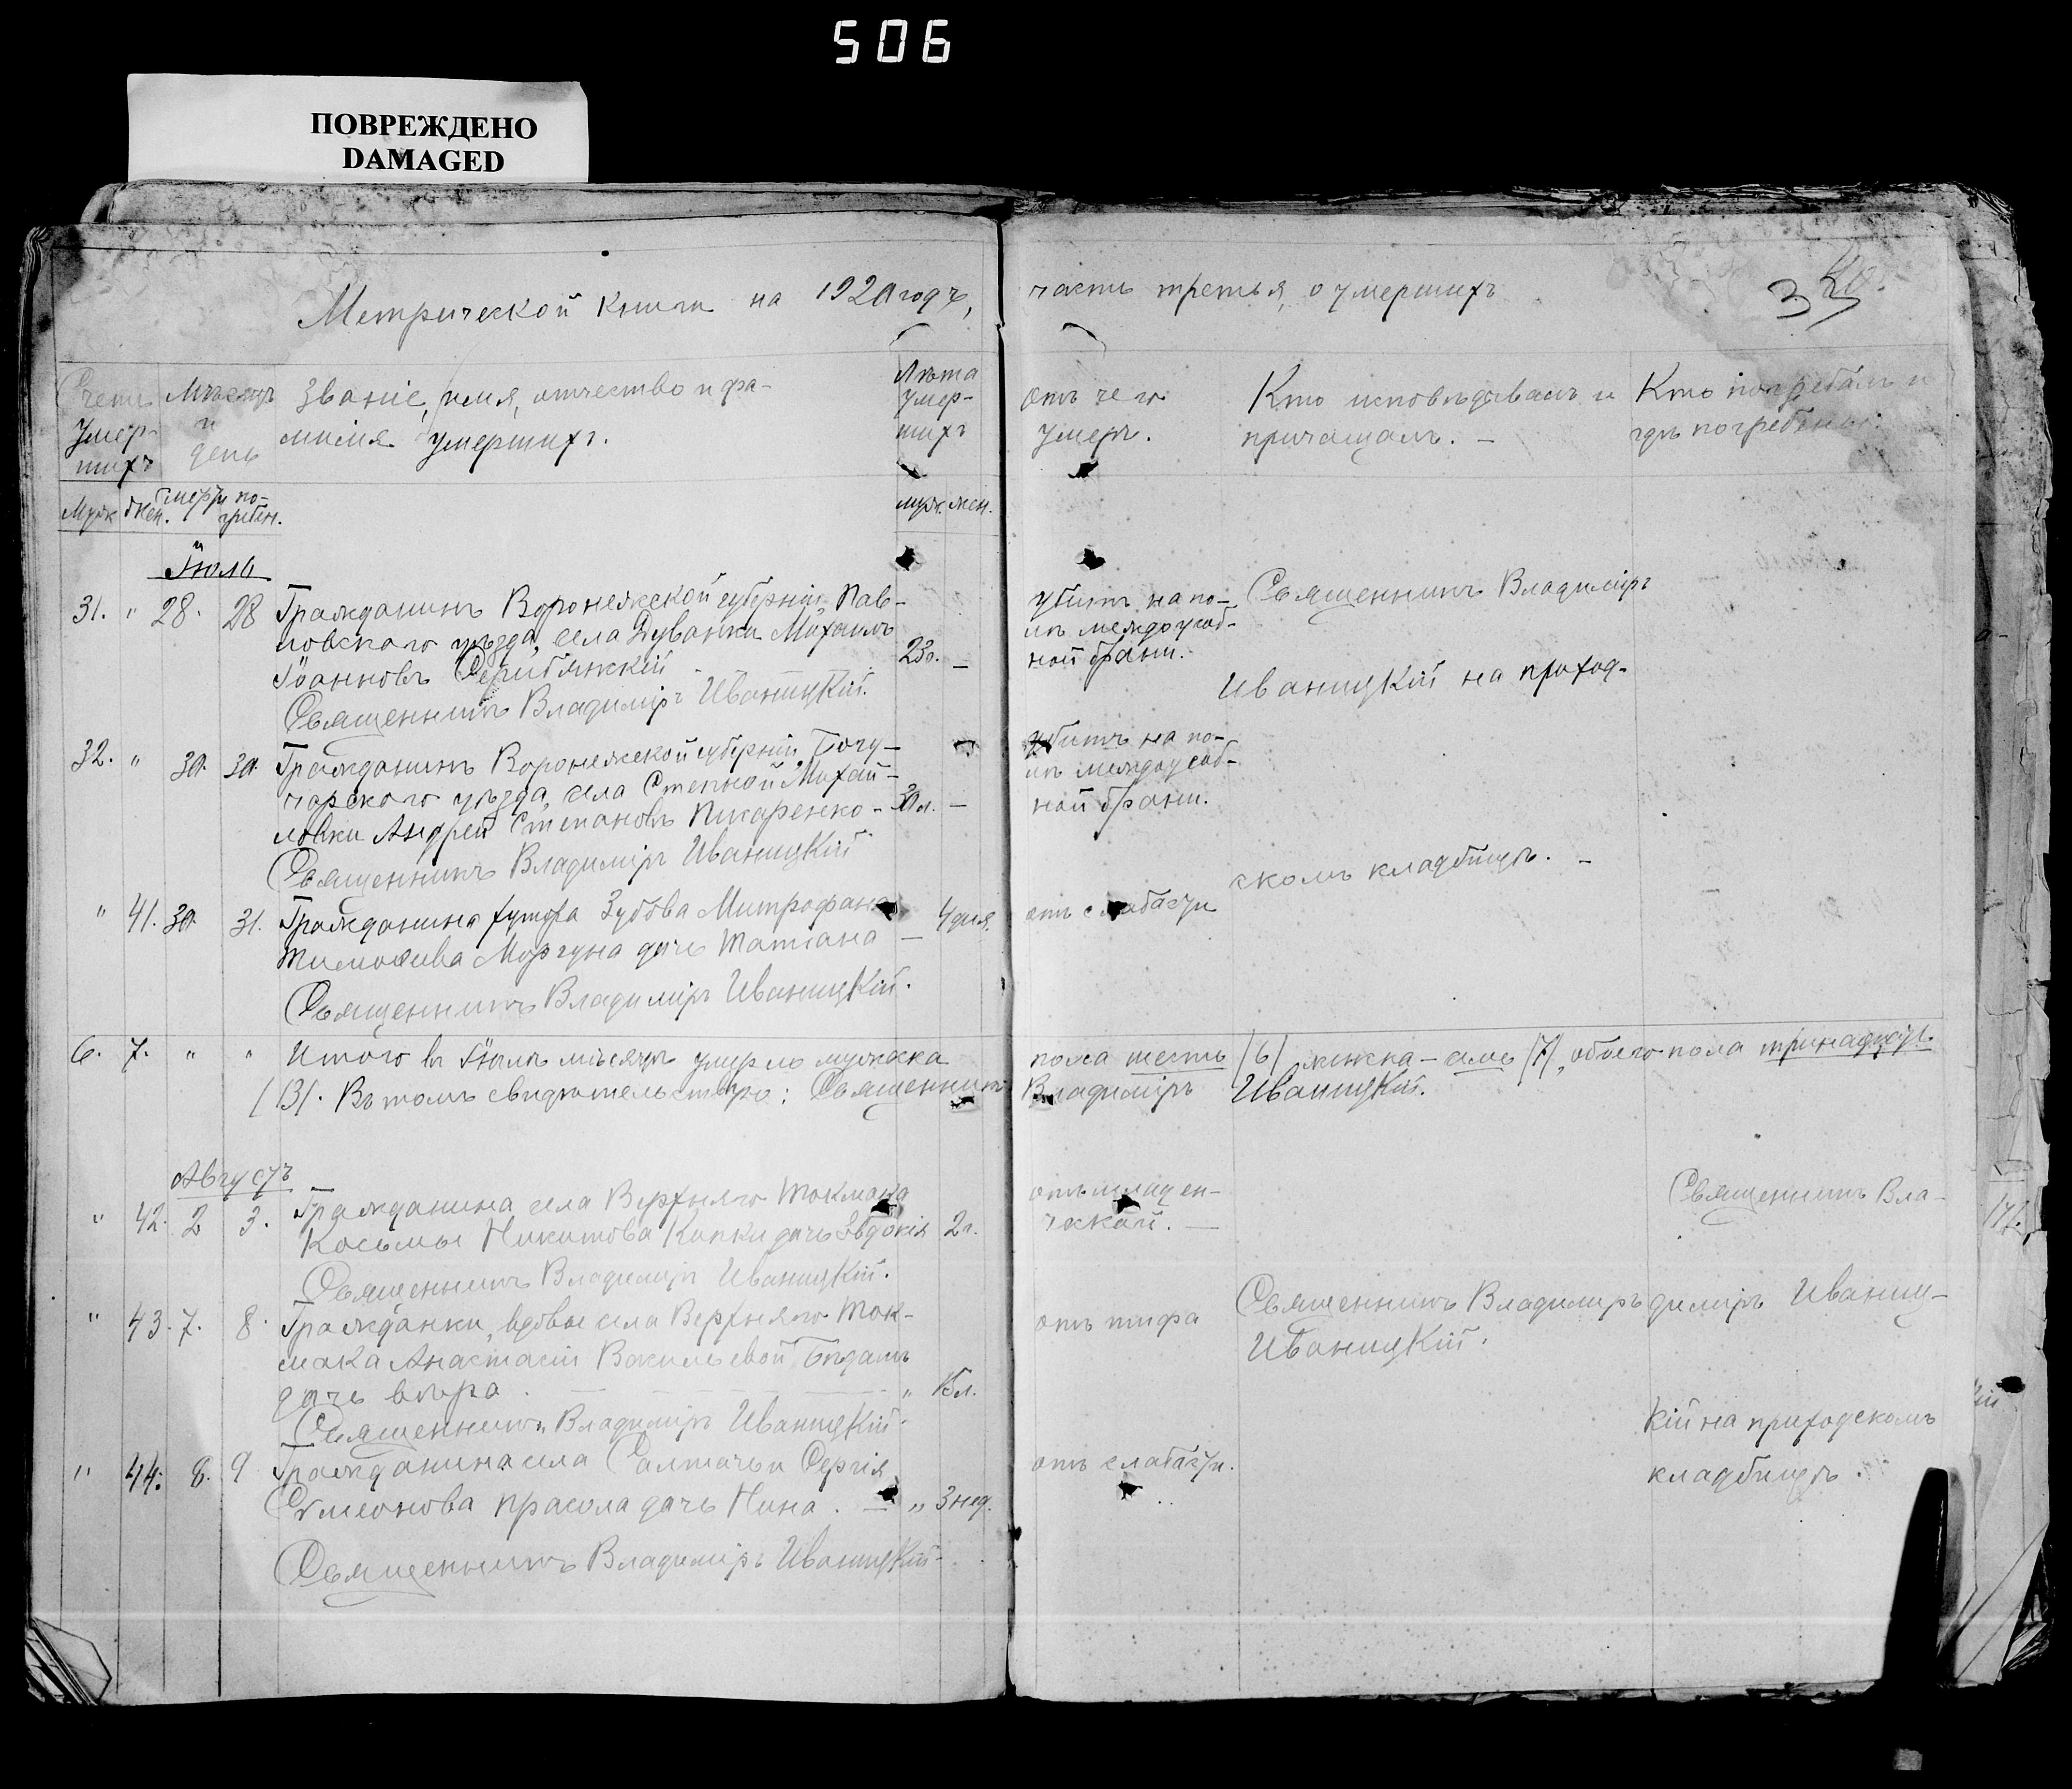 506
ПОВРЕЖДЕНО
DAMAGED
Метрической книги на 1920 годъ,
Счетъ умер-шихъ
Мѣсяцъ и день
Званіе, имя, отчество и фа-
милія умершихъ.
Лѣта
умер-
шихъ
Муж. Жен.
смерти по-
гребен.
муж. жен.
Іюль
31. " 28. 28 Гражданинъ Воронежской губерніи, Пав-
ловскаго уѣзда, села Дуванки Михаилъ
Іоанновъ 23г. –
Священникъ Владиміръ Иваницкій.
32. " 30. 30. Гражданинъ Воронежской губерніи, Богу-
чарскаго уѣзда, села Степной Михай-
ловки Андрей Степановъ Писаренко - 30л. –
Священникъ Владиміръ Иваницкій
" 41. 30. 31. Гражданина хутора Зубова Митрофана
Тимоѳеева Моргуна дочь Татіана – 4 дня.
Священникъ Владиміръ Иваницкій.
6. 7. " " Итого въ Іюлѣ мѣсяцѣ умерло мужеска
/13/. Въ томъ свидѣтельствую: Священникъ
Августъ
" 42. 2 3. Гражданина села Верхняго Токмака
Косьмы Никитова Кипки дочь Евдокія 2г.
Священникъ Владиміръ Иваницкій.
" 43. 7. 8. Гражданки, вдовы села Верхняго Ток-
мака Анастасіи Васильевой Бѣдашъ
дочь Вѣра. " 15л.
Священникъ Владиміръ Иваницкій.
" 44. 8. 9 Гражданина села Салтычьи Сергія
Сѵмеонова Прасола дочь Нина. – " 3 нед.
Священникъ Владиміръ Иваницкій-
часть третья, о умершихъ
35
40.
отъ чего
умеръ.
Кто исповѣдывалъ и
причащалъ. –
Кто погребалъ и
гдѣ погребены.
убитъ на по-
лѣ междоусоб-
ной брани.
Священникъ Владиміръ
Иваницкій на приход-
убитъ на по-
лѣ междоусоб-
ной брани.
скомъ кладбищѣ. –
отъ слабости
пола шесть /6/ женска – семь /7/, обоего пола тринадцать.
Владиміръ Иваницкій.
отъ младен-
ческой. –
Священникъ Вла-
отъ тифа
Священникъ Владиміръ
Иваницкій.
диміръ Иваниц-
кій на приходскомъ
кладбищѣ.
отъ слабости.